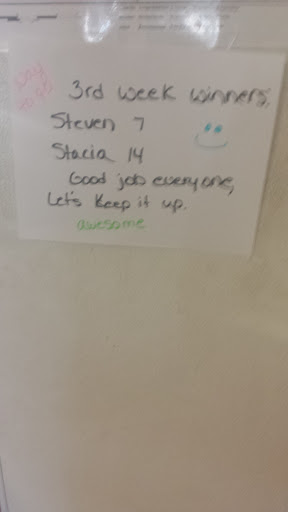 3rd week winners,
Steven 7
Stacia 14
Good job everyone,
Let's keep it up.
awesome